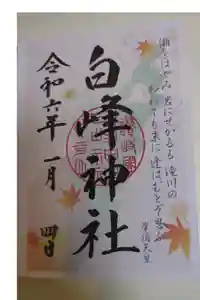 瀬をはやみ 岩にせかるる 滝川の
われても末に 逢はむとぞ思ふ
崇徳天皇
白峰神社
令和六年 一月 四日